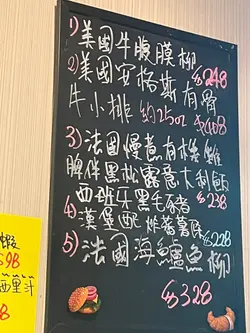 1)美國牛腹膜柳
$248
2)美國安格斯有骨
牛小排 約25oz $408
3)法國慢煮有機雞
脾伴黑松露意大利飯
西班牙黑毛豬脊 $238
4)漢堡配拼蕃薯條
$228
5)法國海鱸魚柳
$328
蝦
$98
西里汁
8